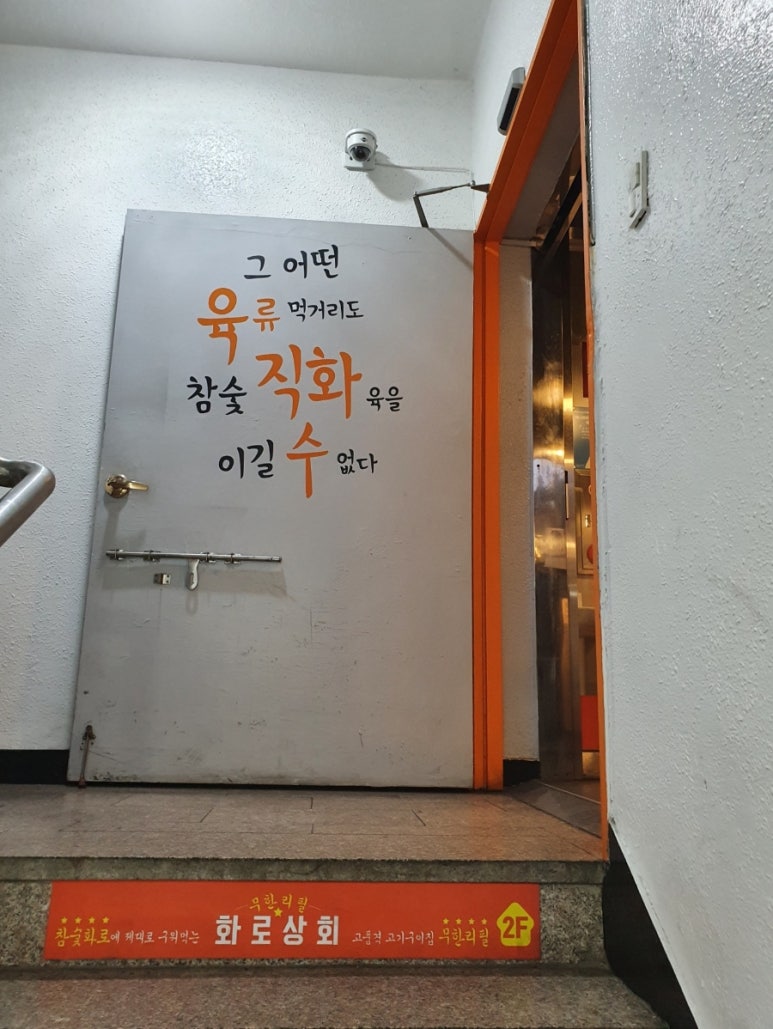 그 어떤
육류 먹거리도
참숯 직화 육을
이길 수 없다
무한리필
참숯화로에 제대로 구워먹는 화로상회 고품격 고기구이집 무한리필 2F